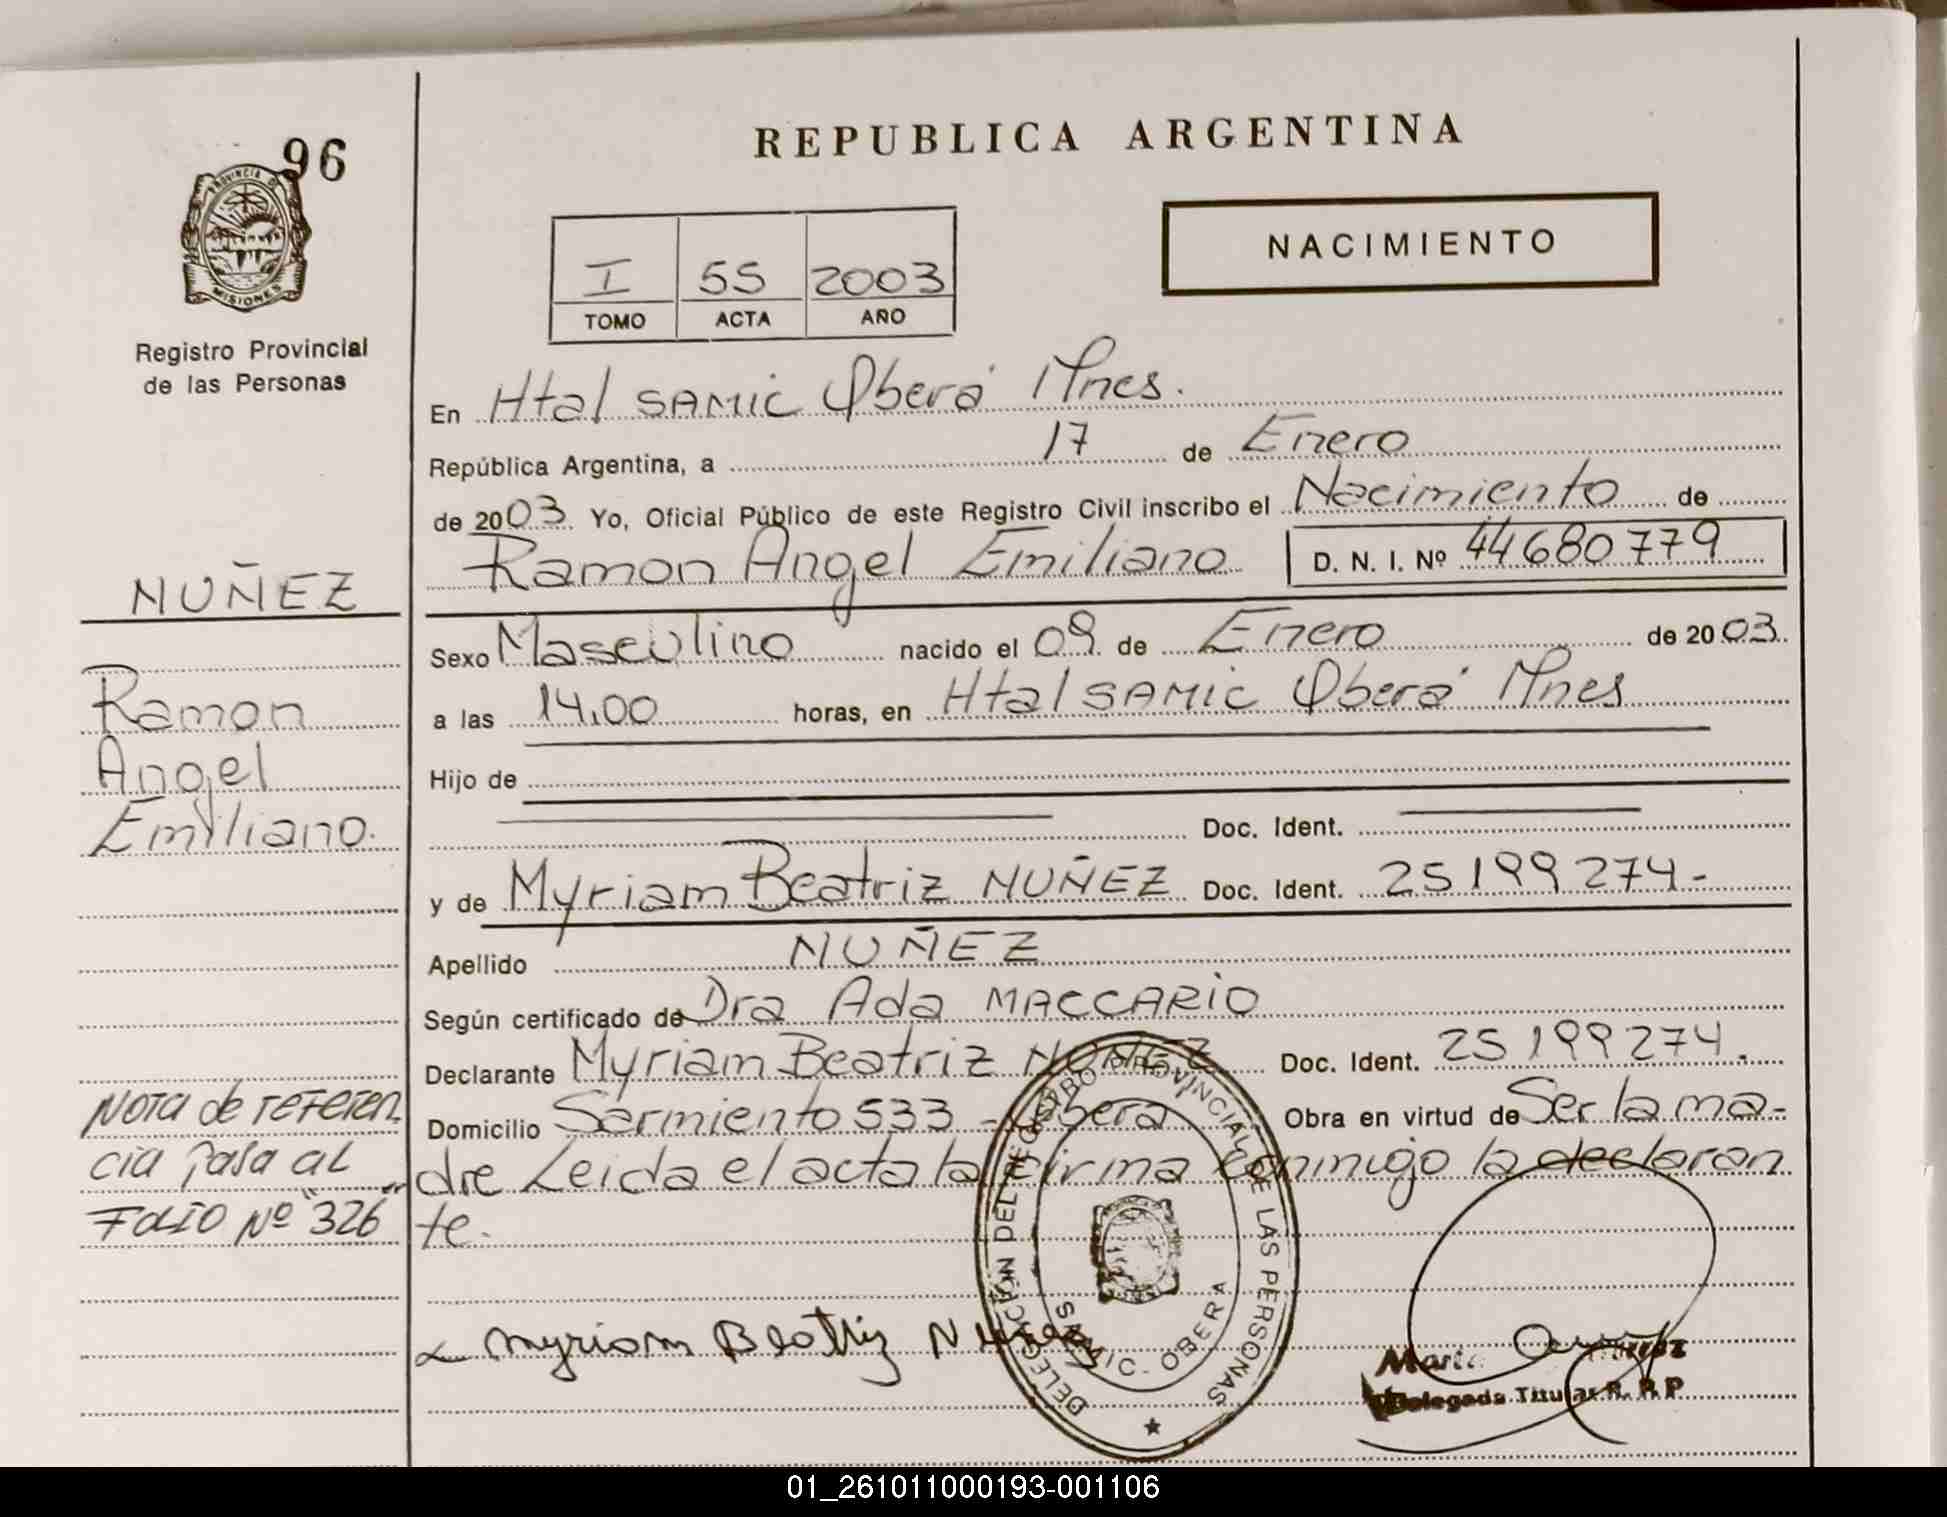 96
PROVINCIA DE
MISIONES
Registro Provincial
de las Personas
NUÑEZ
Ramon
Angel
Emiliano.
Nota de referen
cia pasa al
Folio Nº "326"
REPUBLICA ARGENTINA
NACIMIENTO
I 55 2003
TOMO ACTA AÑO
En Htal SAMIC Oberá Mnes.
República Argentina, a 17 de Enero
de 2003 Yo, Oficial Público de este Registro Civil inscribo el Nacimiento de
Ramon Angel Emiliano D. N. I. Nº 44680779
Sexo Masculino nacido el 09 de Enero de 2003
a las 14,00 horas, en Htal SAMIC Oberá Mnes
Hijo de
Doc. Ident.
y de Myriam Beatriz NUÑEZ Doc. Ident. 25199274-
Apellido NUÑEZ
Según certificado de Dra Ada MACCARIO
Declarante Myriam Beatriz NUÑEZ Doc. Ident. 25199274.
Domicilio Sarmiento 533 - Obera Obra en virtud de Ser la ma-
dre Leida el acta la firma conmigo la declaran
te.
Myriam Beatriz Nuñez
DELEGACIÓN DEL REGISTRO PROVINCIAL DE LAS PERSONAS
SAMIC - OBERA
Delegada Titular R. P. P
01_261011000193-001106